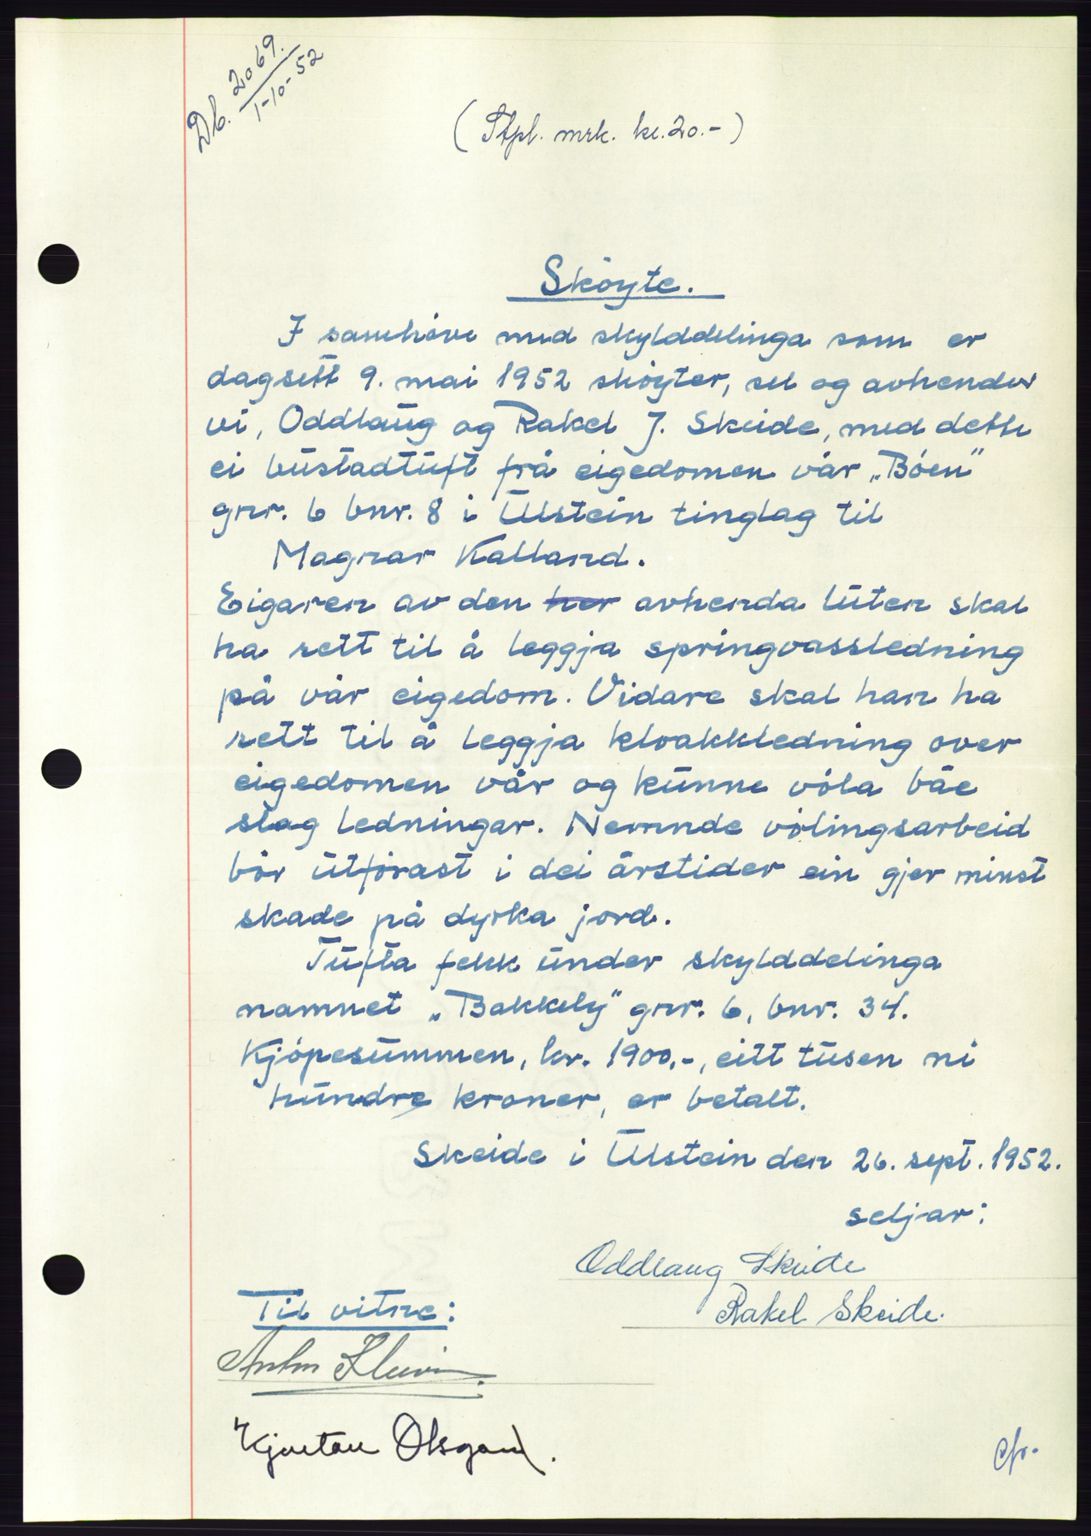 Db. 2069.
1-10-52
(Stpl. mrk. kr. 20.-)
Sköyte.
I samhöve med skylddelinga som er
dagsett 9. mai 1952 sköyter, sel og avhender
vi, Oddlaug og Rakel J. Skeide, med dette
ei bustadtuft frå eigedomen vår „Böen"
gnr. 6 bnr. 8 i Ulstein tinglag til
Magnar Kalland.
Eigaren av den her avhenda luten skal
ha rett til å leggja springvassledning
på vår eigedom. Vidare skal han ha
rett til å leggja kloakkledning over
eigedomen vår og kunne völa båe
slag ledningar. Nemnde völingsarbeid
bör utförast i dei årstider ein gjer minst
skade på dyrka jord.
Tufta fekk under skylddelinga
namnet „Bakkely" gnr. 6, bnr. 34.
Kjöpesummen, kr. 1900,-, eitt tusen ni
hundre kroner, er betalt.
Skeide i Ulstein den 26. sept. 1952.
seljar:
Oddlaug Skeide
Rakel Skeide.
Til vitne:
Kjartan